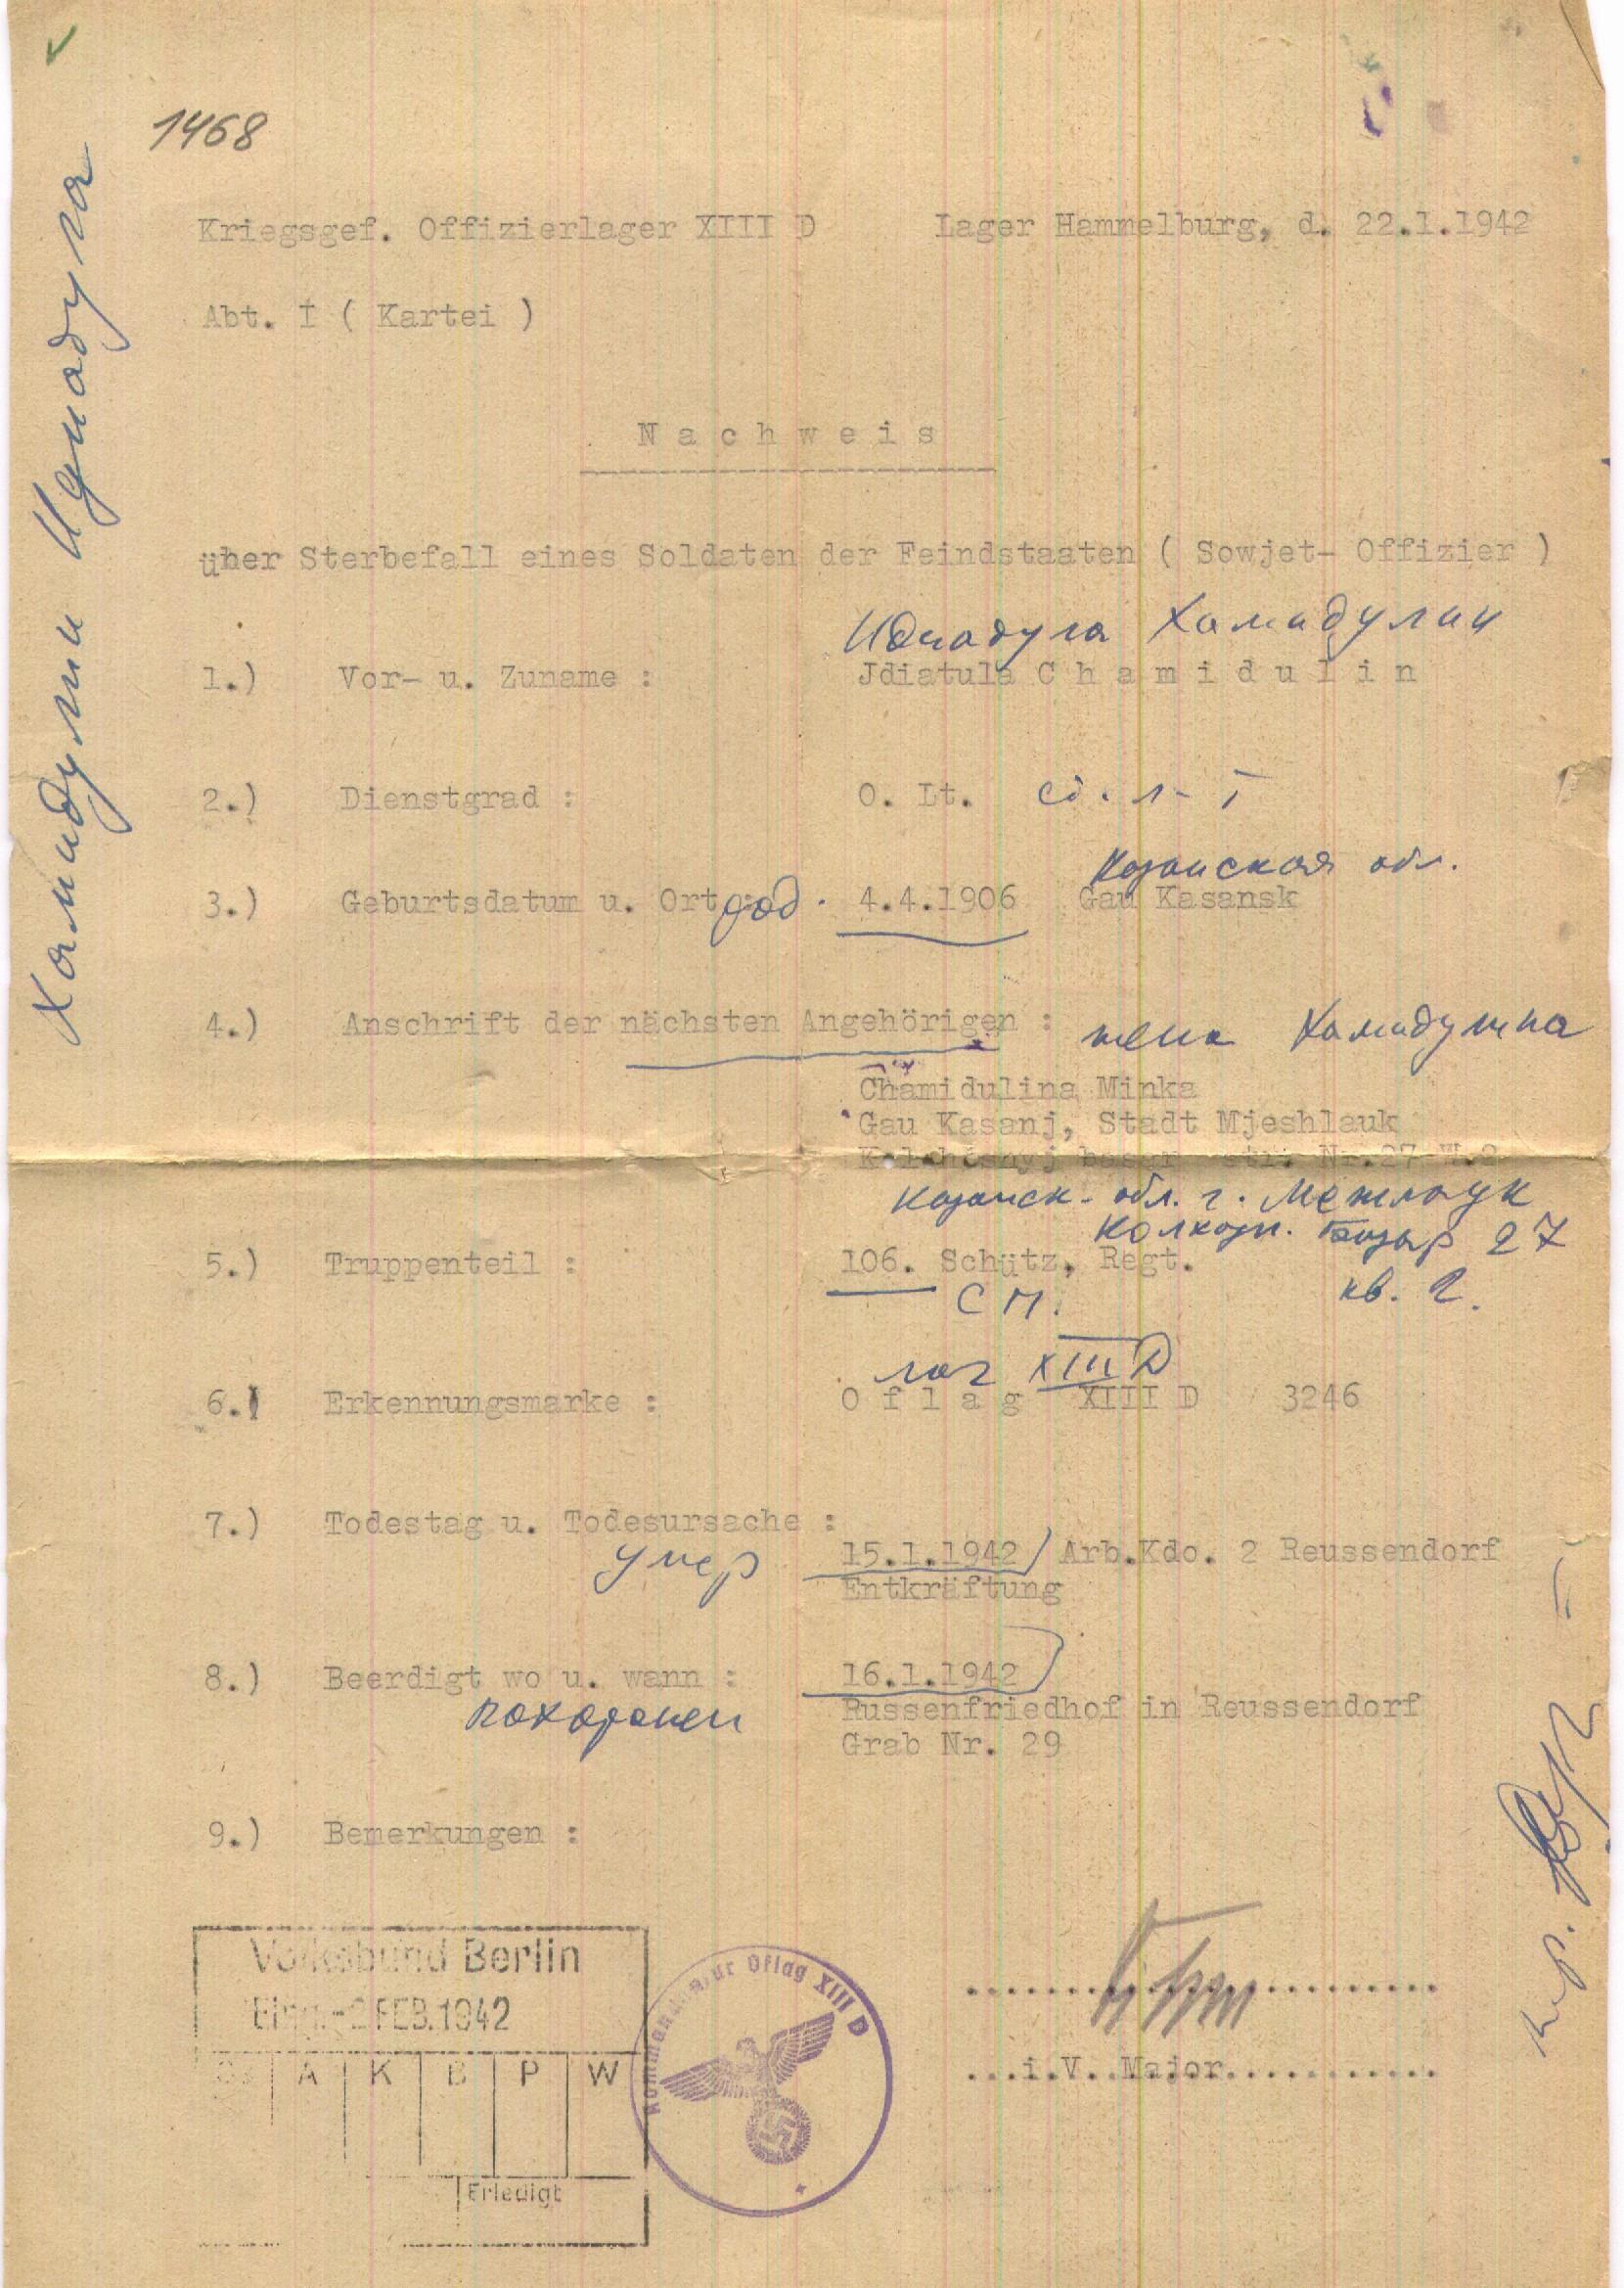 1468
Kriegsgef. Offizierlager XIII D Lager Hammelburg, d. 22.1.1942
Abt. I ( Kartei )
N a c h w e i s
über Sterbefall eines Soldaten der Feindstaaten ( Sowjet- Offizier )
Идиадула Хамидулин
1.) Vor- u. Zuname : Jdiatula C h a m i d u l i n
2.) Dienstgrad : O. Lt. ст. л-т
Казанская обл.
3.) Geburtsdatum u. Ort : год. 4.4.1906 Gau Kasansk
4.) Anschrift der nächsten Angehörigen : жена Хамидулина
Chamidulina Minka
Gau Kasanj, Stadt Mjeshlauk
str. Nr.27 W.2
Казанск. обл. г. Межлаук
Колхозн. Базар 27
5.) Truppenteil : 106. Schütz, Regt.
СП. кв. 2.
лаг XIII D
6.) Erkennungsmarke : O f l a g XIII D 3246
7.) Todestag u. Todesursache :
умер 15.1.1942 Arb.Kdo. 2 Reussendorf
Entkräftung
8.) Beerdigt wo u. wann : 16.1.1942
похоронен Russenfriedhof in Reussendorf
Grab Nr. 29
9.) Bemerkungen :
Volksbund Berlin
Eing.-2 FEB.1942
A K B P W
Erledigt
Kommandantur Oflag XIII D
...i.V. Major...........
Хамидулин Идиадула
пер.